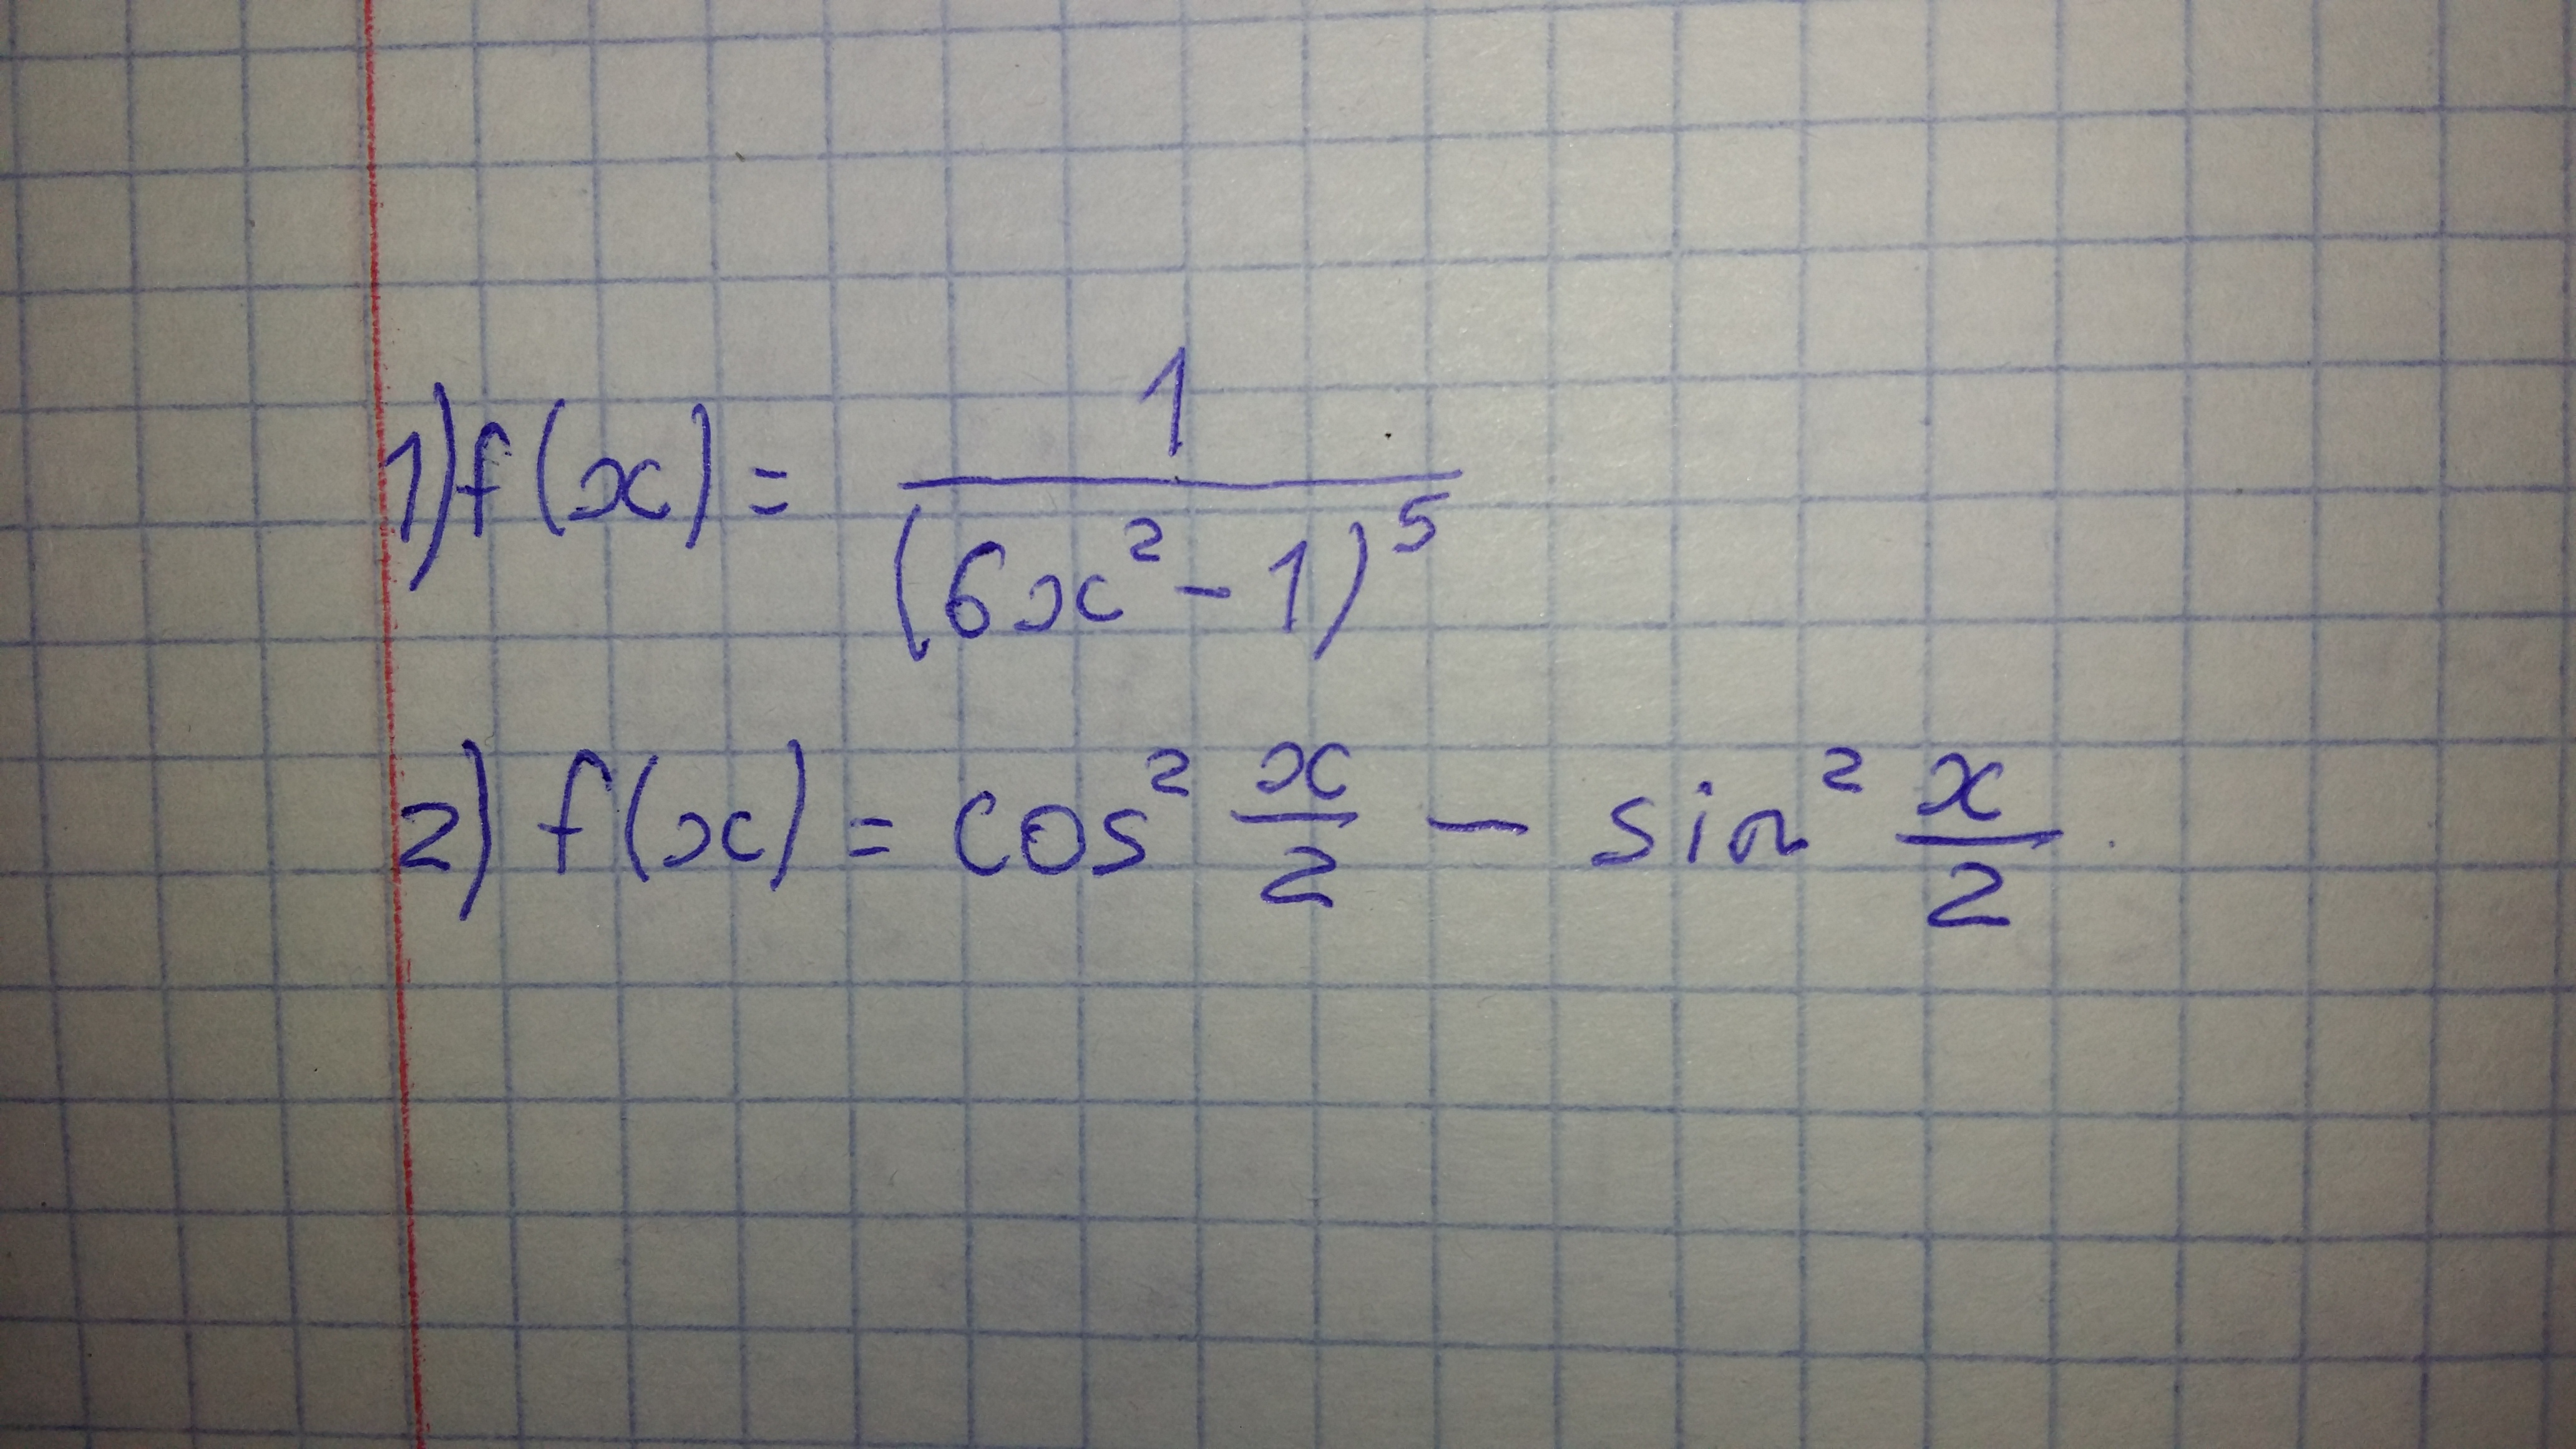 1) f(x) = 1/(6x² - 1)⁵
2) f(x) = cos² x/2 - sin² x/2